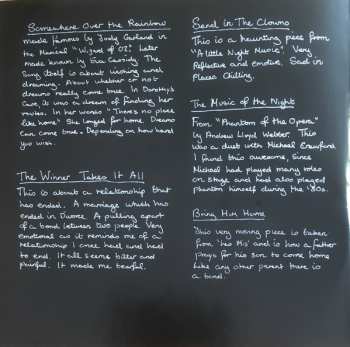 Somewhere Over the Rainbow
made famous by Judy Garland in
the Musical "Wizard of Oz". Later
made known by Eva Cassidy. The
Song itself is about wishing and
dreaming. About whether or not
dreams really come true. In Dorothy's
Case, it was a dream of finding her
routes. In her words "There's no place
like home". She longed for home. Dreams
can come true. Depending on how hard
you wish.
The Winner Takes It All
This is about a relationship that
has ended. A marriage which has
ended in Divorce. A pulling apart
of a bond between two people. Very
emotional as it reminds me of a
relationship I once had and had
to end. It all seems bitter and
painful. It made me tearful.
Send In The Clowns
This is a haunting piece from
"A little Night Music". Very
Reflective and emotive. Sad in
places. Chilling.
The Music of the Night
From "Phantom of the Opera"
by Andrew Lloyd Webber. This
was a duet with Michael Crawford
I found this awesome, since
Michael had played many roles
on stage and had also played
phantom himself during the '80s.
Bring Him Home
This very moving piece is taken
from 'Les Mis' and is how a father
prays for his son to come home
Like any other parent there is
a bond.